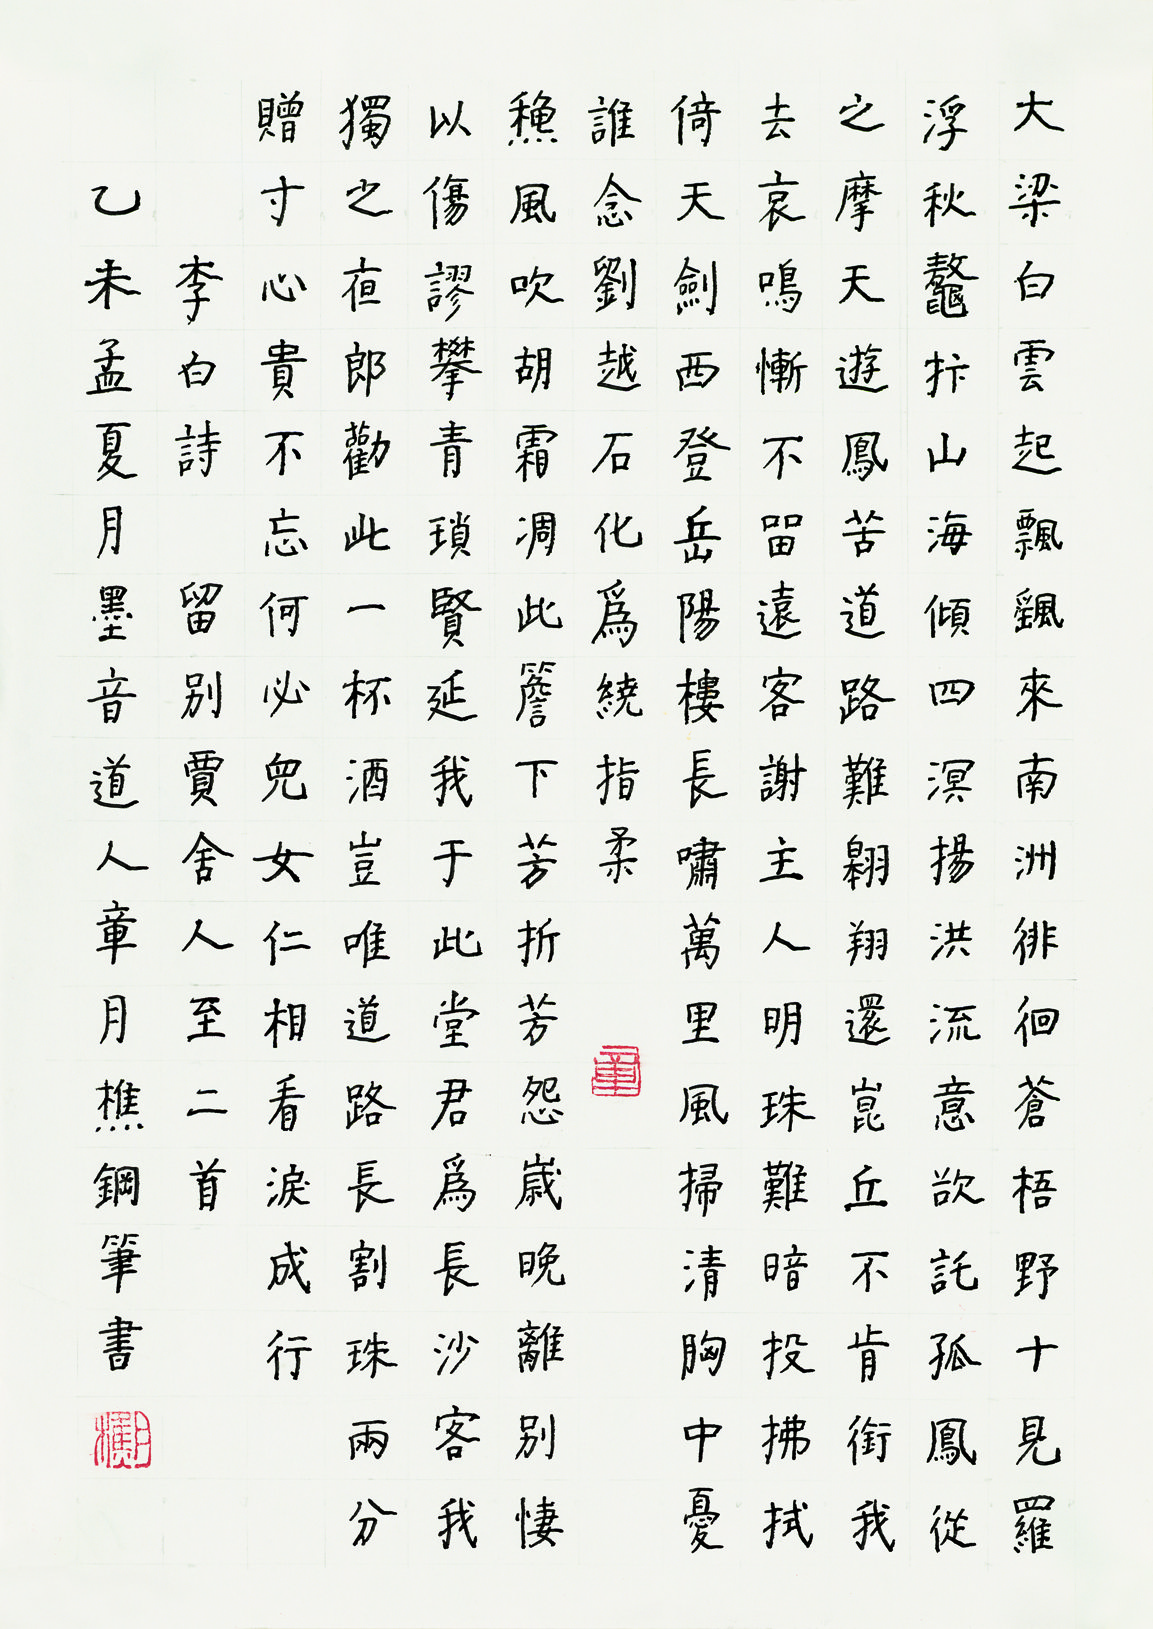 大梁白雲起飄颻來南洲徘徊蒼梧野十見羅
浮秋鼇抃山海傾四溟揚洪流意欲託孤鳳從
之摩天遊鳳苦道路難翱翔還崑丘不肯銜我
去哀鳴慚不畱遠客謝主人明珠難暗投拂拭
倚天劍西登岳陽樓長嘯萬里風掃清胸中憂
誰念劉越石化爲繞指柔
龝風吹胡霜凋此簷下芳折芳怨歲晚離別悽
以傷謬攀青瑣賢延我于此堂君爲長沙客我
獨之夜郎勸此一杯酒豈唯道路長割珠兩分
贈寸心貴不忘何必兒女仁相看淚成行
李白詩 留別賈舍人至二首
乙未孟夏月墨音道人章月樵鋼筆書
章
月樵